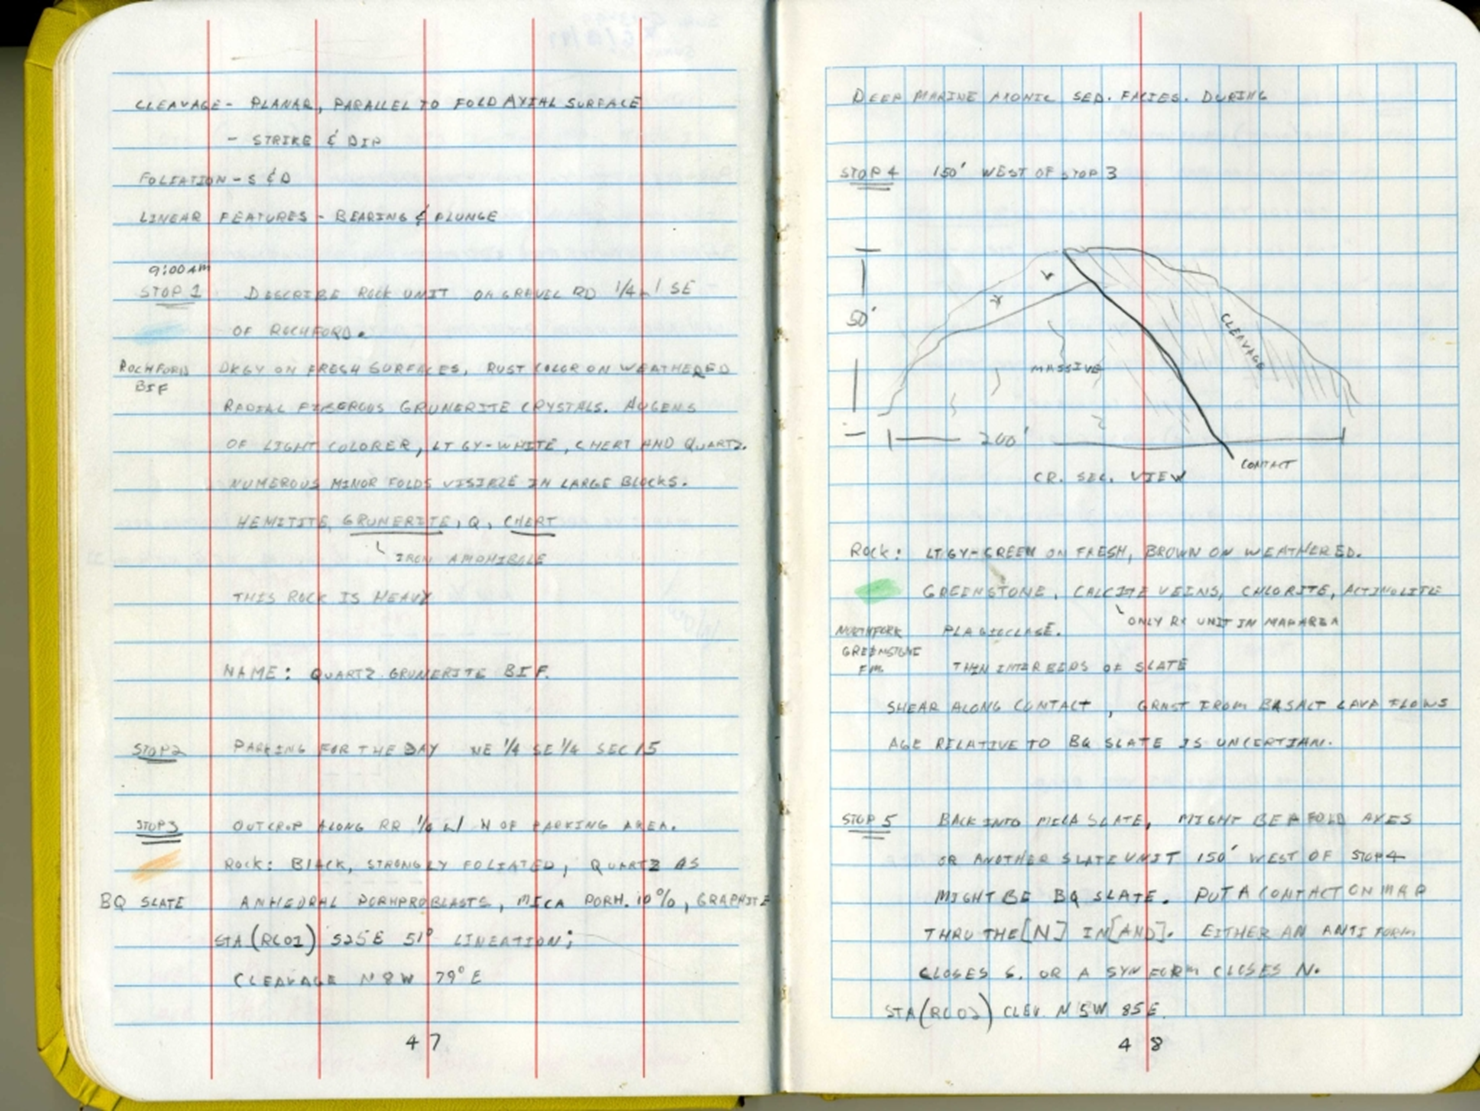 CLEAVAGE - PLANAR, PARALLEL TO FOLD AXIAL SURFACE
- STRIKE & DIP
FOLIATION - S & D
LINEAR FEATURES - BEARING & PLUNGE
9:00 AM
STOP 1 DESCRIBE ROCK UNIT ON GRAVEL RD 1/4 SE
OF ROCHFORD.
ROCHFORD BIF
DKGY ON FRESH SURFACES, RUST COLOR ON WEATHERED
RADIAL FIBEROUS GRUNERITE CRYSTALS. AUGENS
OF LIGHT COLORER, LT GY-WHITE, CHERT AND QUARTZ.
NUMEROUS MINOR FOLDS VISIBLE IN LARGE BLOCKS.
HEMITITE, GRUNERITE, Q, CHERT
IRON AMPHIBOLE
THIS ROCK IS HEAVY
NAME: QUARTZ GRUNERITE BIF.
STOP 2 PARKING FOR THE DAY NE 1/4 SE 1/4 SEC 15
STOP 3 OUTCROP ALONG RR N OF PARKING AREA.
ROCK: BLACK, STRONGLY FOLIATED, QUARTZ AS
BQ SLATE ANHEDRAL PORHPROBLASTS, MICA PORH. 10%, GRAPHITE
STA (RC01) S25E 51° LINEATION;
CLEAVAGE N8W 79°E
47
DEEP MARINE SED. FACIES. DURING
STOP 4 150' WEST OF STOP 3
50'
MASSIVE
CLEAVAGE
200'
CONTACT
CR. SEC. VIEW
ROCK: LTGY-GREEN ON FRESH, BROWN ON WEATHERED.
GREENSTONE, CALCITE VEINS, CHLORITE, ACTINOLITE
ONLY RX UNIT IN MAPAREA
PLAGIOCLASE.
NORTHFORK GREENSTONE FM.
THIN INTERBEDS OF SLATE
SHEAR ALONG CONTACT, GRNST FROM BASALT LAVA FLOWS
AGE RELATIVE TO BQ SLATE IS UNCERTIAN.
STOP 5 BACK INTO MICA SLATE, MIGHT BE A FOLD AXES
OR ANOTHER SLATE UNIT 150' WEST OF STOP 4
MIGHT BE BQ SLATE. PUT A CONTACT ON MAP
THRU THE [N] IN [AND]. EITHER AN ANTIFORM
CLOSES S. OR A SYNFORM CLOSES N.
STA (RC02) CLEV. N5W 85E.
48